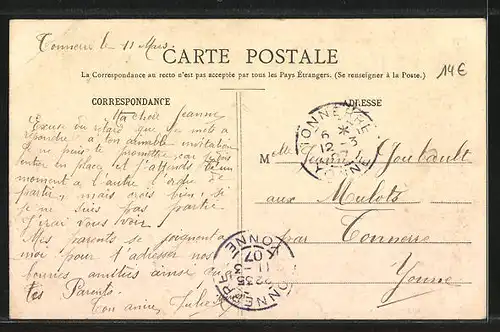 Tonnerre le 11 Mars.
CARTE POSTALE
14€
La Correspondance au recto n'est pas acceptée par tous les Pays Étrangers. (Se renseigner à la Poste.)
CORRESPONDANCE
Ma chère Jeanne
Excuse du retard que je mets à
répondre à ton aimable invitation
Je ne puis te promettre, car je dois
entrer en place et j'attends d'un
moment à l'autre l'ordre de
partir, mais crois bien, si
je ne suis pas partie
J'irai vous voir.
Mes parents se joignent à
moi pour t'adresser nos
bonnes amitiés ainsi qu'à
tes Parents.
Ton amie,
ADRESSE
Mlle Jeanne
aux Mulots
par Tonnerre
Yonne
TONNERRE
6 * 3
12
YONNE
TONNERRE
235
11-3
07
YONNE